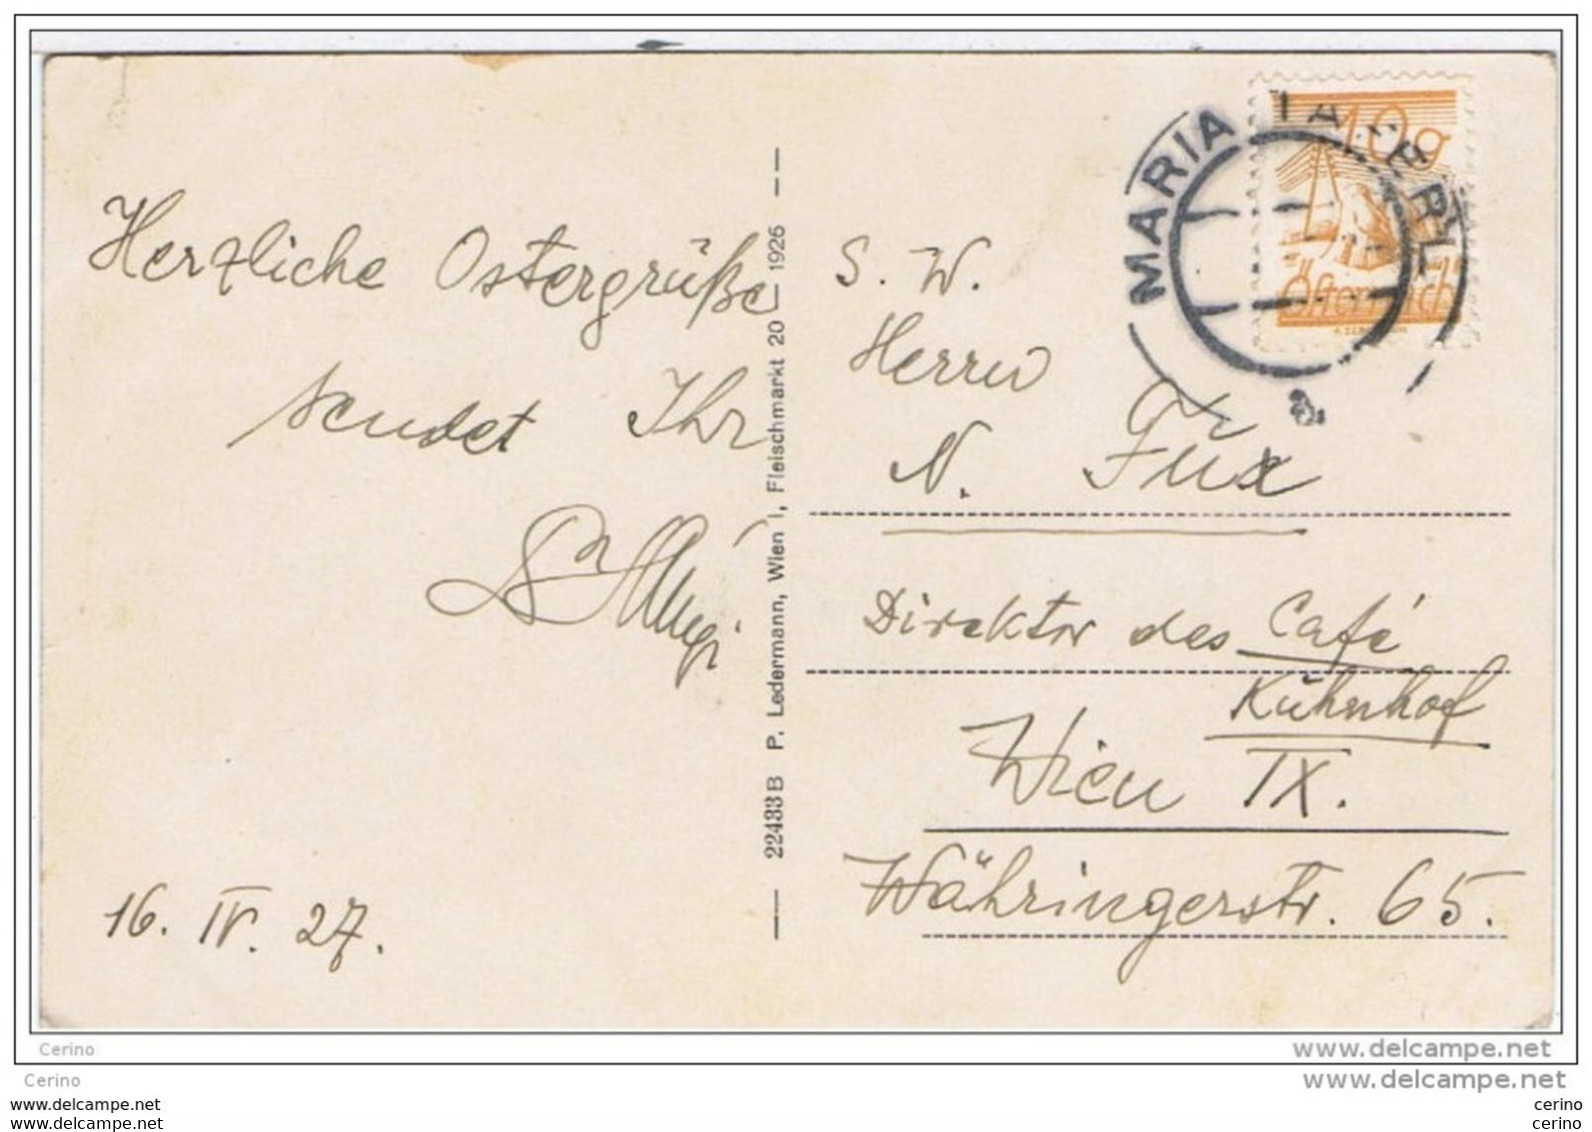 Herzliche Ostergrüße
sendet Ihr
16. IV. 27.
22433 B P. Ledermann, Wien I, Fleischmarkt 20 1926
MARIA TAFERL
10g
Österreich
S. W.
Herrn
N. Fux
Direktor des Café
Kuhnhof
Wien IX.
Währingerstr. 65.
Cerino
www.delcampe.net
Cerino
www.delcampe.net
www.delcampe.net
cerino
www.delcampe.net
cerino